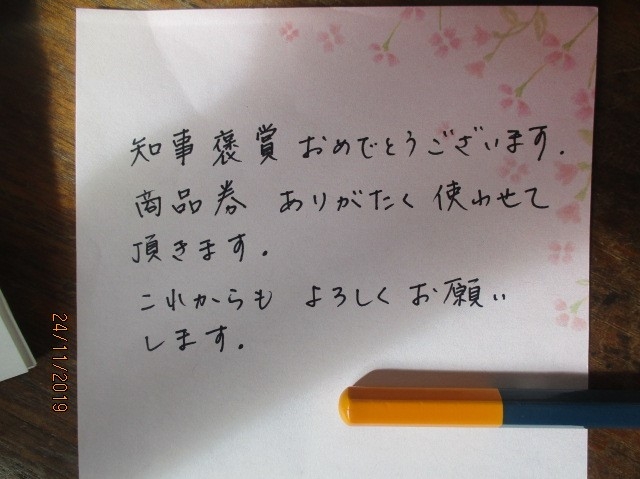 知事褒賞 おめでとうございます.
商品券 ありがたく 使わせて
頂きます.
これからも よろしく お願い
します.
24/11/2019